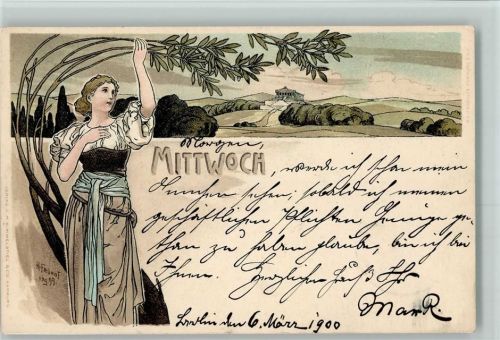 Morgen,
MITTWOCH, werde ich schon mein
sehen, sobald ich meinen
geschäftlichen Pflichten Genüge ge-
than zu haben glaube, bin ich bei
Ihnen. Herzlichen Gruß Ihr
MaxR.
Berlin den 6. März 1900